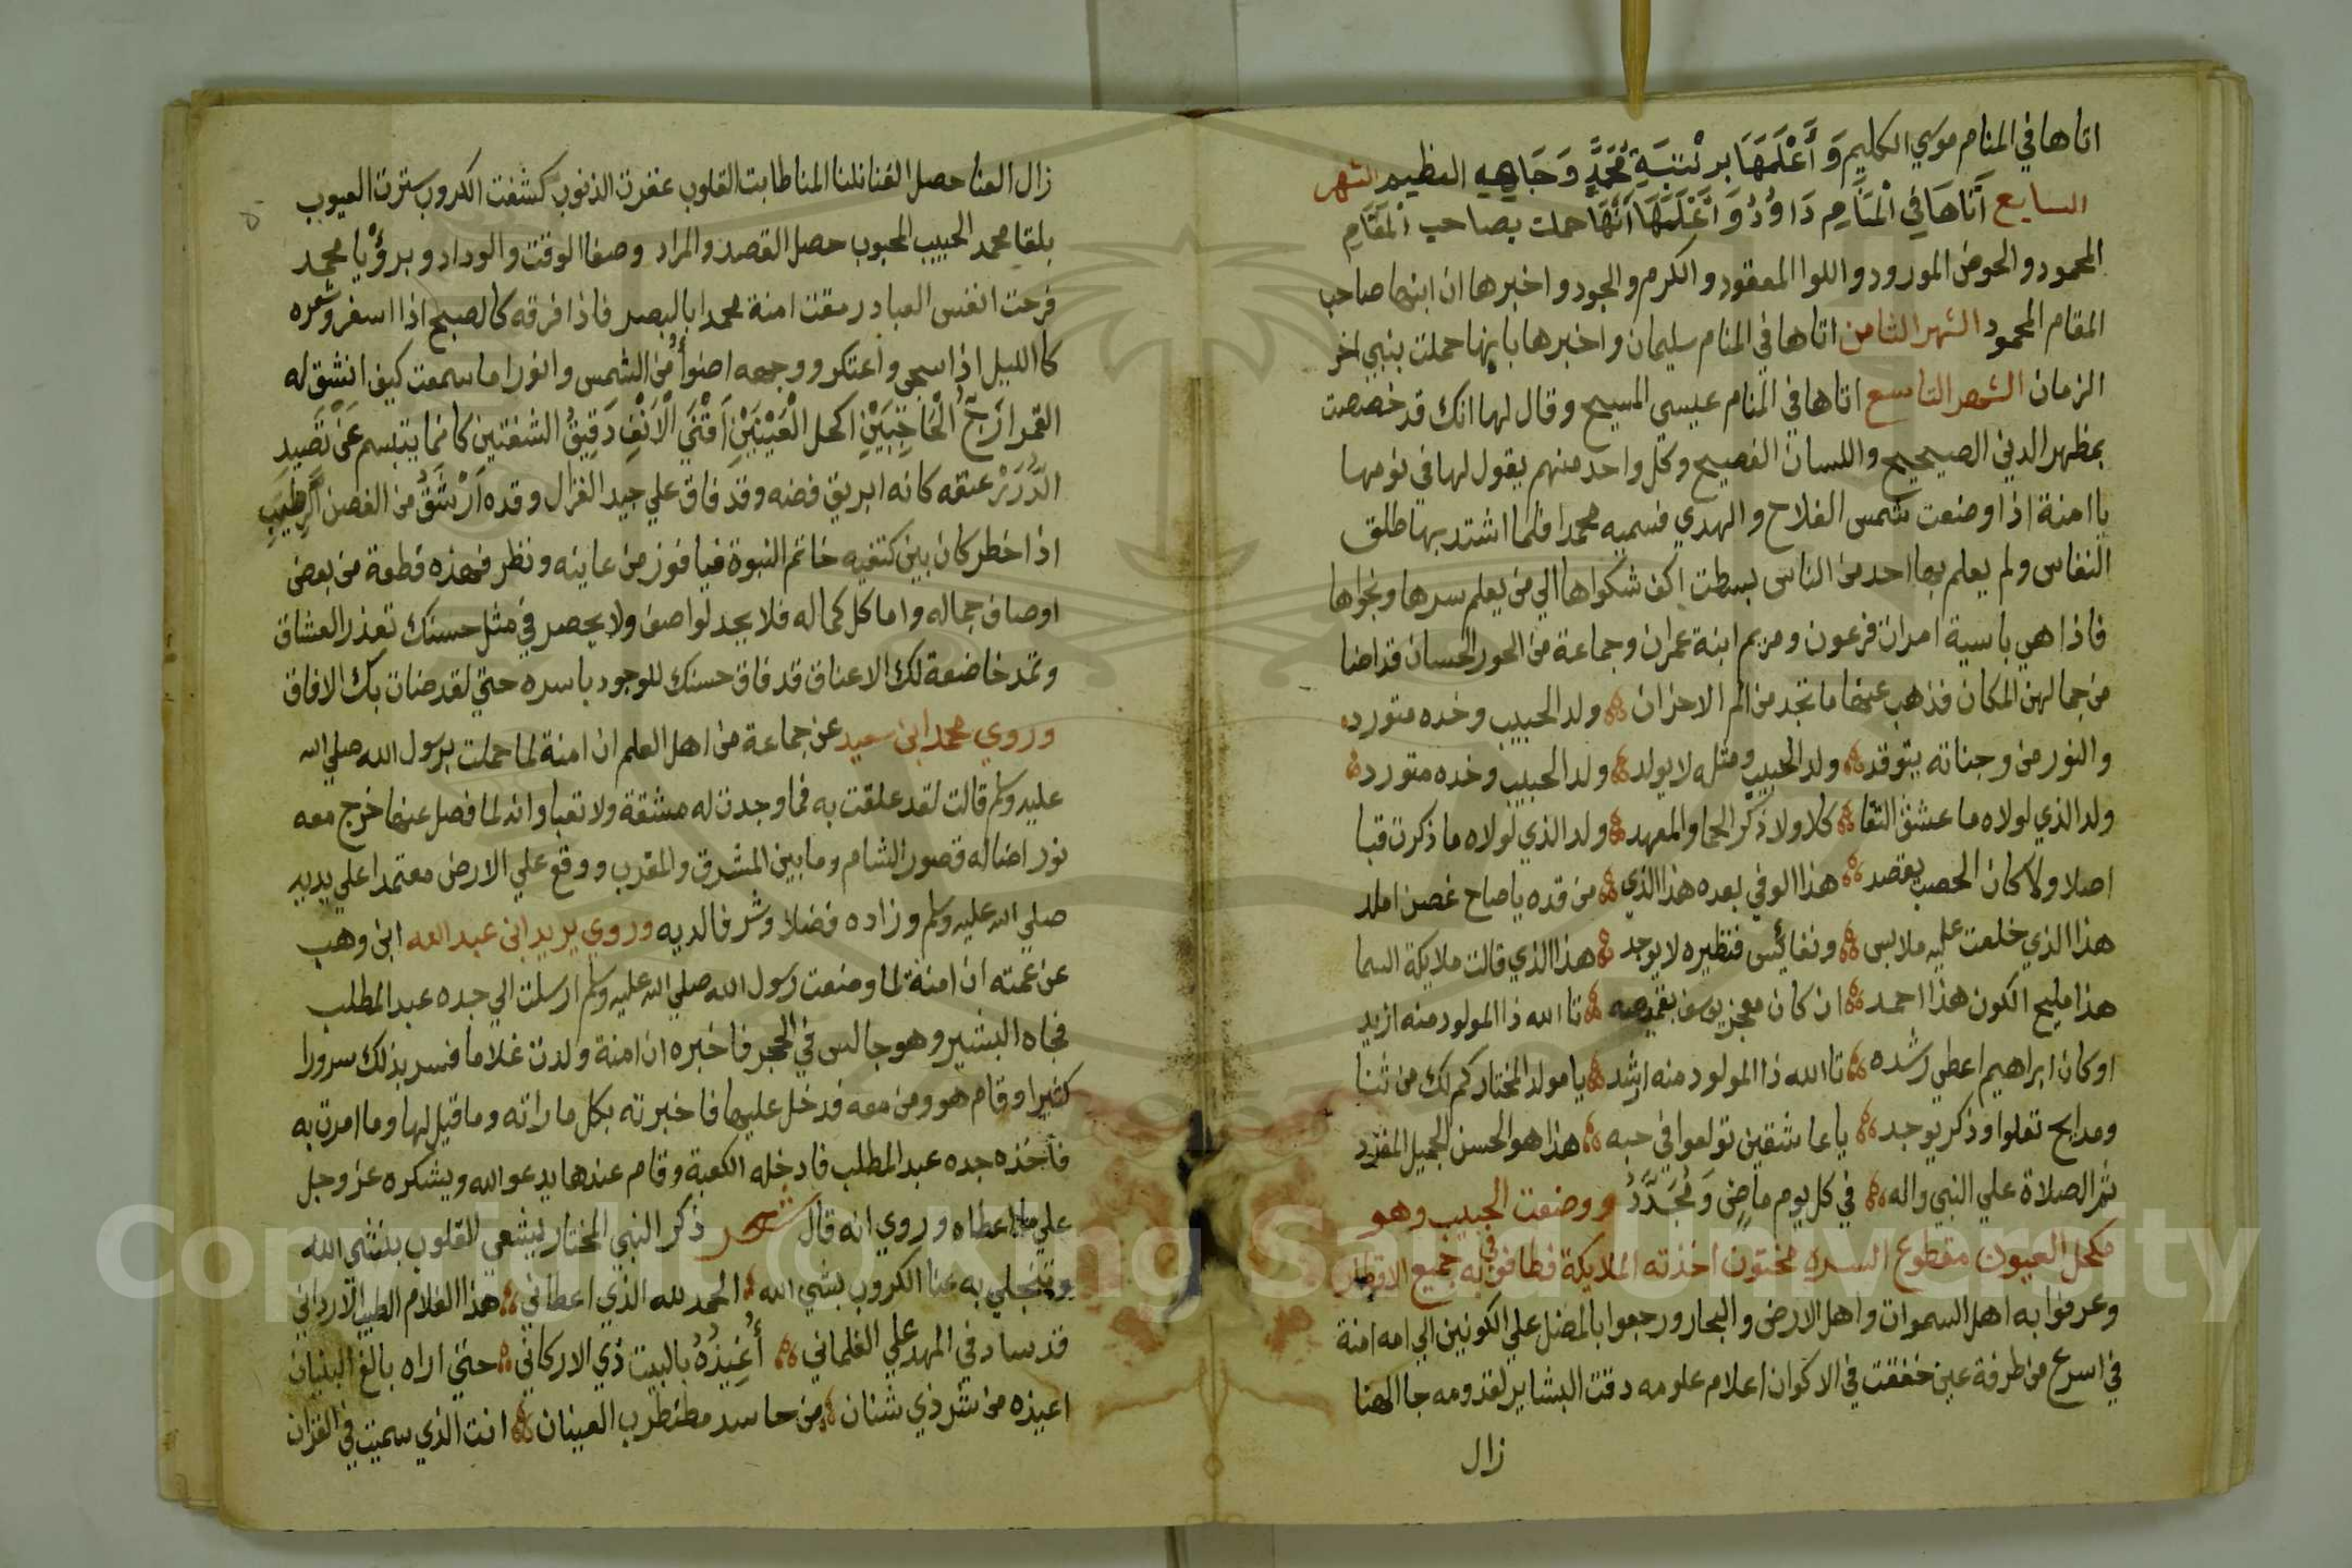 اتاها في المنام موسي الكليم وَأَعْلَمَهَا برتْبَةِ مُحَمَّدٍ وَجَاهِهِ العظيم الشهر
السابع أَتَاهَا فِي الْمَنَامِ دَاوُدُ وَأَعْلَمَهَا أَنَّهَا حملت بصاحب الْمَقَامِ
المحمود والحوض المورود واللوا المعقود والكرم والجود واخبرها ان ابنها صاحب
المقام المحمود الشهر الثامن اتاها في المنام سليمان واخبرها بانها حملت بنبي اخر
الزمان الشهر التاسع اتاها في المنام عيسي المسيح وقال لها انك قد خصصت
بمظهر الدين الصحيح واللسان الفصيح وكل واحد منهم يقول لها في نومها
يا امنة اذا وضعت شمس الفلاح والهدي فسميه محمدا فلما اشتد بها طلق
النفاس ولم يعلم بها احد من الناس بسطت اكف شكواها الي من يعلم سرها ونجواها
فاذا هي باسية امراة فرعون ومريم ابنة عمران وجماعة من الحور الحسان قد اضا
من جمالهن المكان فذهب عنها ما تجد من الم الاحزان ولد الحبيب وخده متورد
والنور من وجناته يتوقد ولد الحبيب ومثله لا يولد ولد الحبيب وخده متورد
ولد الذي لولاه ما عشق النقا كلا ولا ذكر الحما والمعهد ولد الذي لولاه ما ذكرت قبا
اصلا ولا كان الحصب يقصد هذا الوفي بعده هذا الذي من قده ياصاح غصن املد
هذا الذي خلعت عليه ملابس ونفائس فنظيره لا يوجد هذا الذي قالت ملايكة السما
هذا مليح الكون هذا احمد ان كان معجز يوسف بقميصه تا الله ذا المولود منه ازيد
او كان ابراهيم اعطي رشده تا الله ذا المولود منه ارشد يا مولد المختار كم لك من ثنا
ومدايح تعلوا وذكر يوجد يا عاشقين تولعوا في حبه هذا هو الحسن الجميل المفرد
ثم الصلاة علي النبي واله في كل يوم ماضٍ وَمُجَدَّدُ ووضعت الحبيب وهو
مكحل العيون مقطوع السره مختون اخذته الملايكة فطافوا به في جميع الاقطار
وعرفوا به اهل السموات واهل الارض والبحار ورجعوا بالمفضل علي الكونين الي امه امنة
في اسرع من طرفة عين خفقت في الاكوان اعلام علومه دقت البشاير لقدومه جا الهنا
زال
زال العنا حصل الغنا نلنا المنا طابت القلوب غفرت الذنوب كشفت الكروب سترت العيوب
بلقا محمد الحبيب المحبوب حصل القصد والمراد وصفا الوقت والوداد وبرؤيا محمد
فرحت انفس العباد رمقت امنة محمدا بالبصر فاذا فرقه كالصبح اذا اسفر وشعره
كالليل اذا سجي واعتكر ووجهه اضوأ من الشمس وانور اما سمعت كيف انشق له
القمر ازجُّ الْحَاجِبَيْنِ اكحل الْعَيْنَيْنِ اَقْنَي الْاَنْفِ دَقِيقُ الشفتين كانما يتبسم عَنْ نَضِيدِ
الدُّرَرْ عنقه كانه ابريق فضه وقد فاق علي جيد الغزال وقده اَرْشَقُ من الغصن الرَّطِيبِ
اذا خطر كان بين كتفيه خاتم النبوة فيا فوز من عاينه ونظر فهذه قطعة من بعض
اوصاف جماله واما كل كماله فلا يحد لواصف ولا يحصر في مثل حسنك تعذر العشاق
وتمد خاضعة لك الاعناق قد فاق حسنك للوجود باسره حتي لقد ضات بك الافاق
وروي محمد ابن سعيد عن جماعة من اهل العلم ان امنة لما حملت برسول الله صلي الله
عليه وسلم قالت لقد علقت به فما وجدت له مشقة ولا تعبا وانه لما فصل عنها خرج معه
نور اضاله قصور الشام وما بين المشرق والمغرب ووقع علي الارض معتمدا علي يديه
صلي الله عليه وسلم وزاده فضلا وشرفا لديه وروي يريد ابن عبد الله ابن وهب
عن عمته ان امنة لما وضعت رسول الله صلي الله عليه وسلم ارسلت الي جده عبد المطلب
فجاه البشير وهو جالس في الحجر فاخبره ان امنة ولدت غلاما فسر بذلك سرورا
كثيرا وقام هو ومن معه فدخل عليها فاخبرته بكل ما راته وما قيل لها وما امرت به
فاخذه جده عبد المطلب فادخله الكعبة وقام عندها يدعو الله ويشكره عز وجل
علي ما اعطاه وروي انه قال شعر ذكر النبي المختار يشفي القلوب بنشي الله
وتنجلي به عنا الكروب بشي الله الحمد لله الذي اعطاني هذا الغلام الطيب الارداني
قد ساد في المهد علي الغلماني أُعِيذُهُ بالبيت ذي الاركاني حتي اراه بالغ البنيان
اعيذه من شر ذي شنان من حاسد مضطرب العينان انت الذي سميت في القران
Copyright © King Saud University